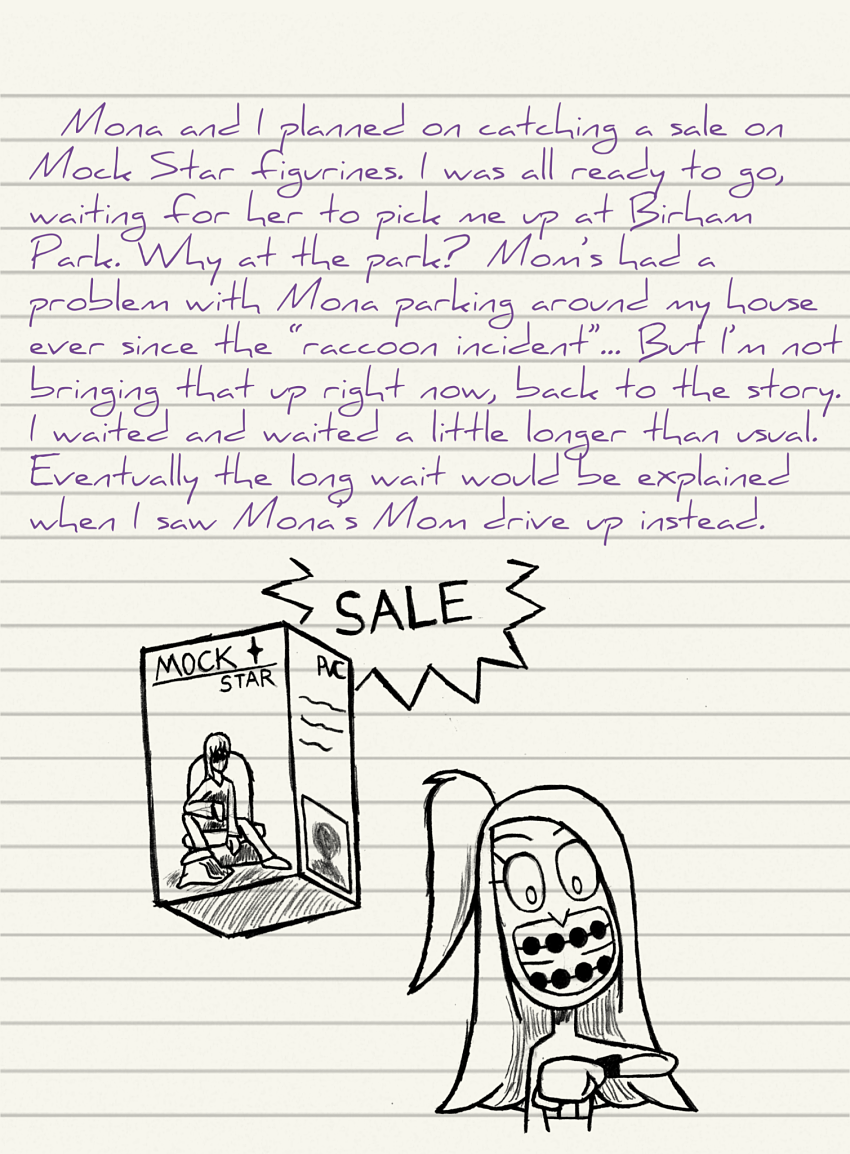 Mona and I planned on catching a sale on
Mock Star figurines. I was all ready to go,
waiting for her to pick me up at Birham
Park. Why at the park? Mom's had a
problem with Mona parking around my house
ever since the "raccoon incident"... But I'm not
bringing that up right now, back to the story.
I waited and waited a little longer than usual.
Eventually the long wait would be explained
when I saw Mona's Mom drive up instead.
SALE
MOCK
STAR
PVC